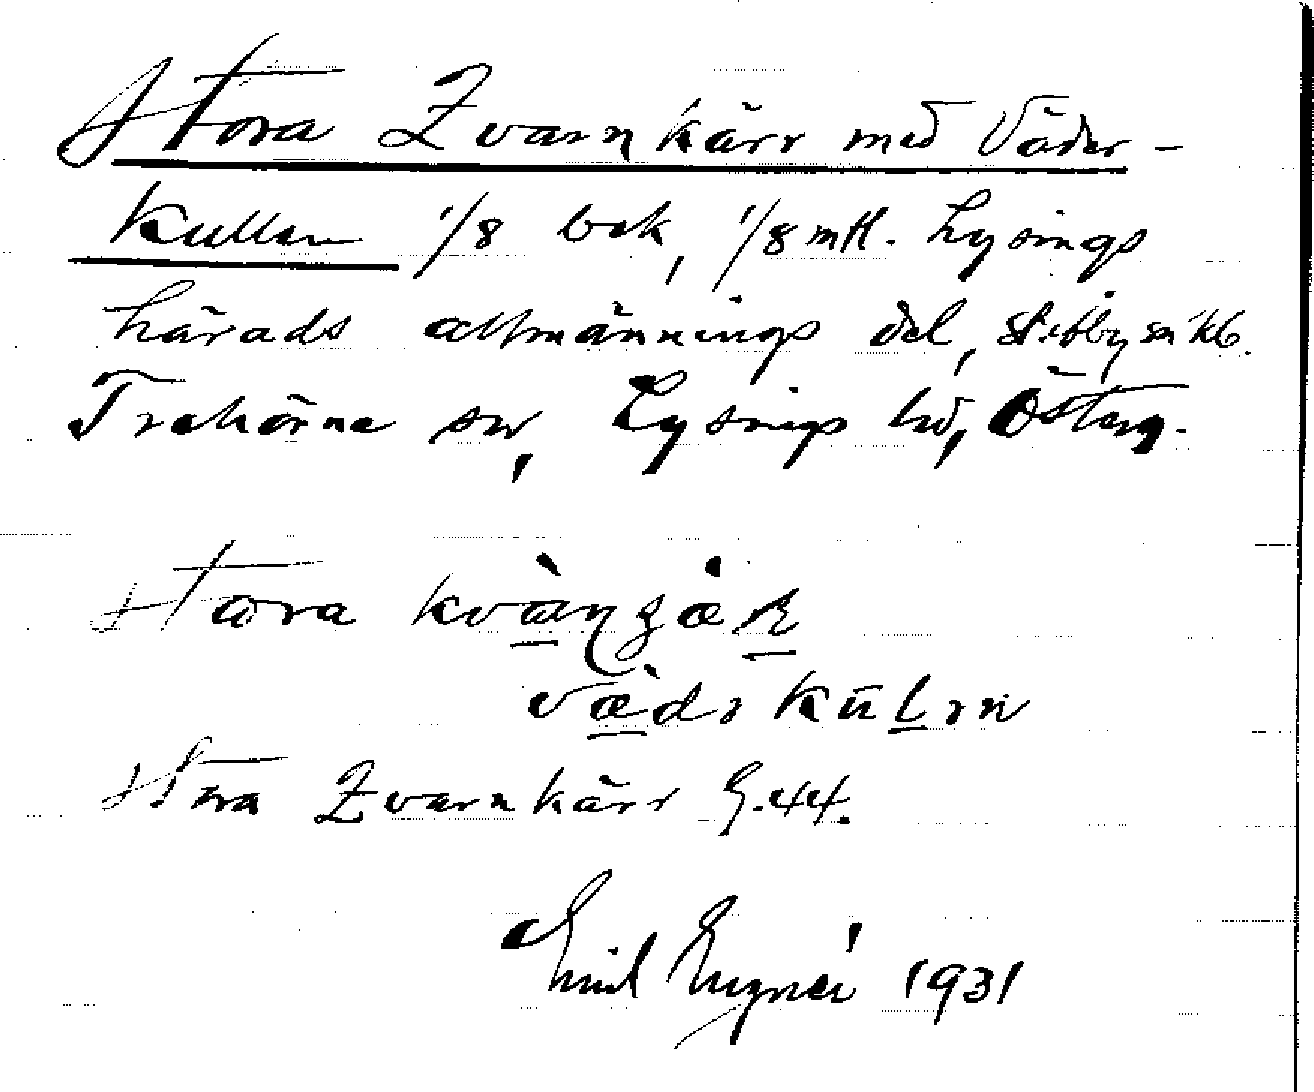 Stora Qvarnkärr med Väder-
Kullen 1/8 bok, 1/8 mtl. Lysings
härads allmännings del,
Trehörne sn, Lysings hd, Österg.
Stora kvànȷä
vädɿ kūLɿn
Stora Qvarnkärr G.44.
Emil 1931